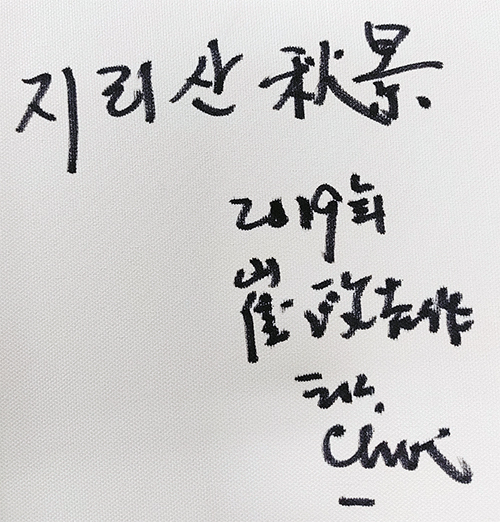 지리산 秋景.
2019年
崔 吉作
Choi